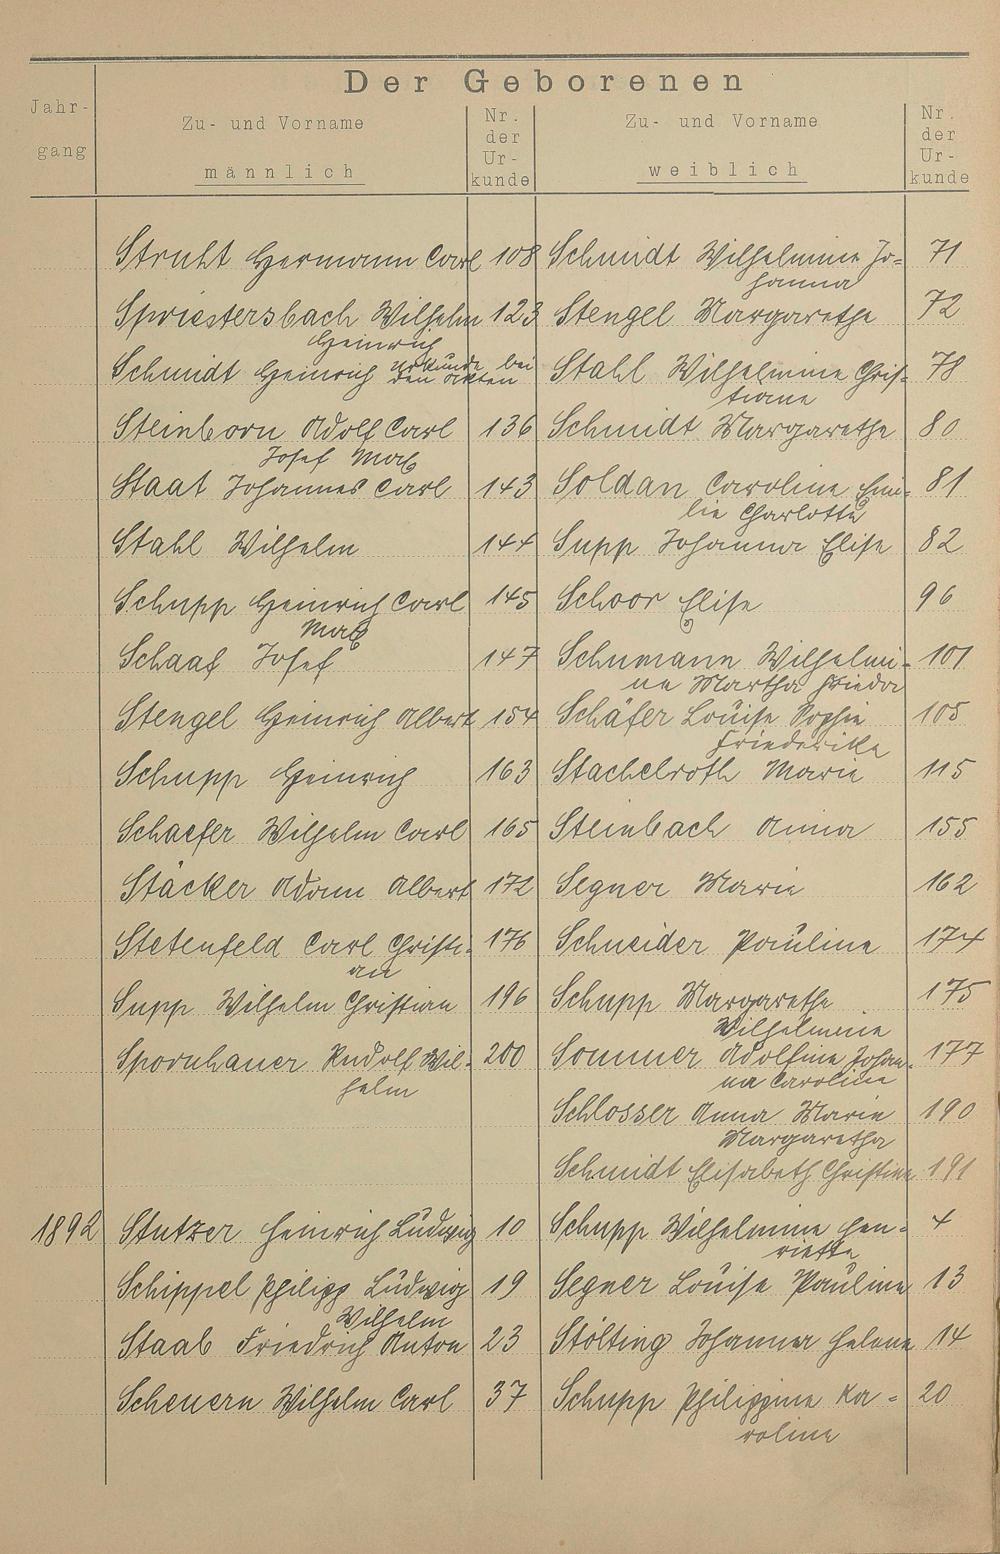 Der Geborenen
Jahr-
gang
Zu- und Vorname
männlich
Nr.
der
Ur-
kunde
Zu- und Vorname
weiblich
Nr.
der
Ur-
kunde
Struht Hermann Carl 108 Schmidt Wilhelmine Jo= 71
hanna
Spriestersbach Wilhelm 123 Stengel Margarethe 72
Heinrich
Schmidt Heinrich Urkunde bei den Akten Stahl Wilhelmine Chris- 78
tiane
Steinborn Adolf Carl 136 Schmidt Margarethe 80
Josef Max
Staat Johannes Carl 143 Soldan Caroline Emi= 81
lie Charlotte
Stahl Wilhelm 144 Supp Johanna Elise 82
Schupp Heinrich Carl 145 Schoor Elise 96
Max
Schaaf Josef 147 Schumann Wilhelmi- 101
ne Martha Frieda
Stengel Heinrich Albert 154 Schäfer Louise Sophie 105
Friederike
Schupp Heinrich 163 Stachelroth Marie 115
Schaefer Wilhelm Carl 165 Steinbach Anna 155
Stäcker Adam Albert 172 Segner Marie 162
Stetenfeld Carl Christi- 176 Schneider Pauline 174
an
Supp Wilhelm Christian 196 Schupp Margarethe 175
Wilhelmine
Spornhauer Rudolf Wil- 200 Sommer Adolfine Johan- 177
helm na Caroline
Schlosser Anna Marie 190
Margaretha
Schmidt Elisabeth Christine 191
1892 Stutzer Heinrich Ludwig 10 Schupp Wilhelmine Hen= 4
riette
Schippel Philipp Ludwig 19 Segner Louise Pauline 13
Wilhelm
Staab Friedrich Anton 23 Stölting Johanna Helene 14
Scheuern Wilhelm Carl 37 Schupp Philippine Ka= 20
roline